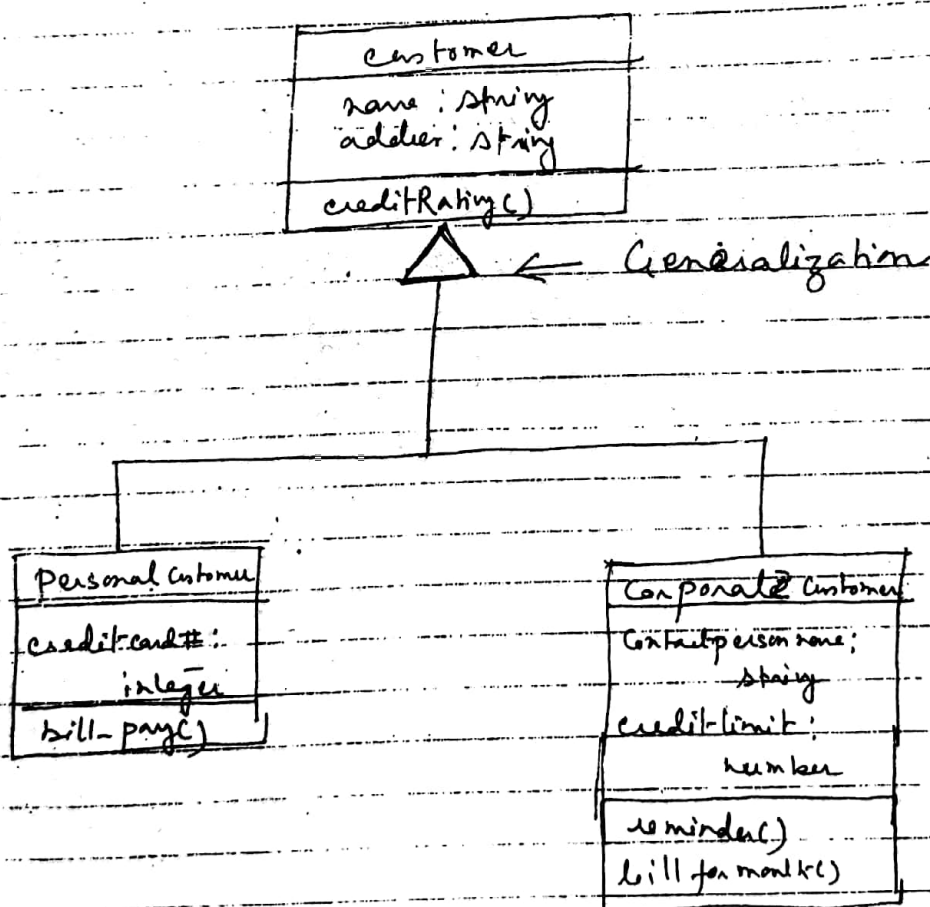 customer
name : string
address : string
creditRating()
Generalization
Personal Customer
credit-card# :
integer
bill_pay()
Corporate Customer
Contactperson name ;
string
credit-limit :
number
reminder()
bill for month()